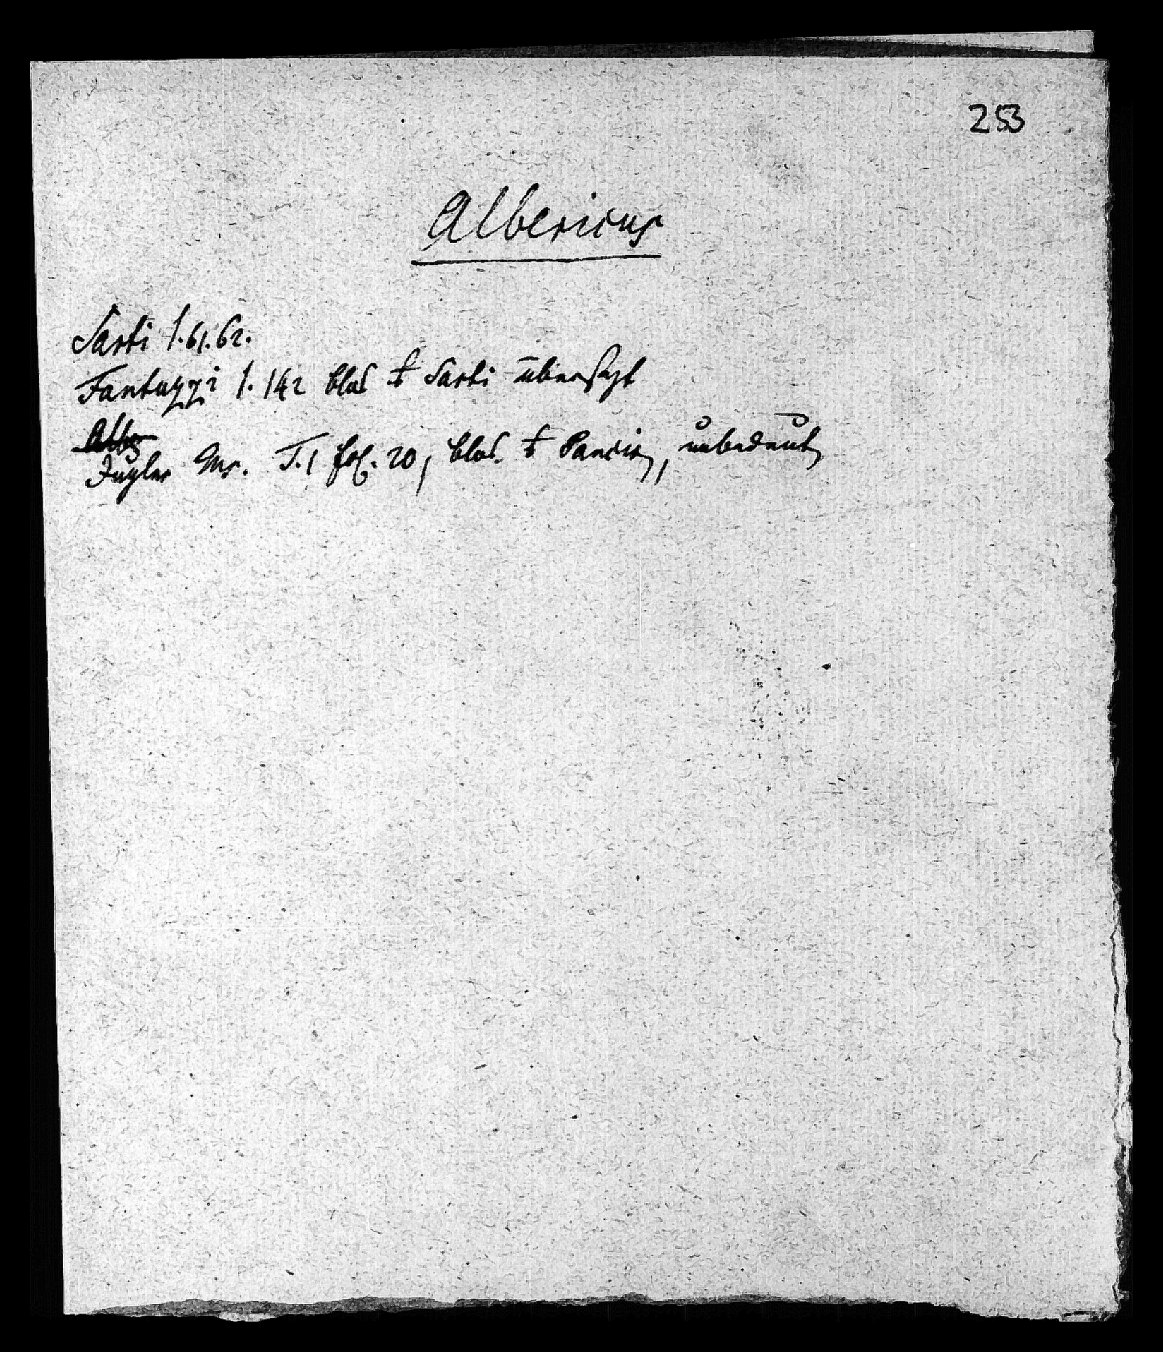 253
Albericus
Sarti S. 61. 62.
Fantuzzi S. 142 blos Sarti übersezt
Albe
Jugler Ms. T. 1 fol. 20, blos. Panzir, unbedeut